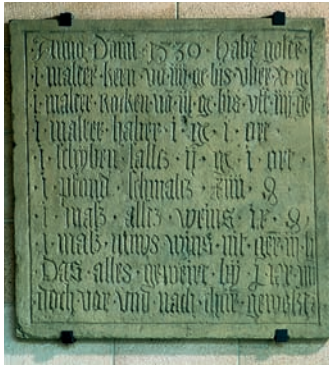 Anno · Dam̄ · 1530 · habē golte
i malter kern · vō iiij · ge bis vber xi ge
i malter rocken vō iij ge · bis · vff iiij ge
i malter haber · i · ge · i · ort
i schyben saltz · ij · ge · i · ort
i pfond schmaltz · xiiii · ₰
i · maß · altz · weins · ix · ₰
i · maß · nüws wins ·
Das · alles · gewert · bij · iar
noch · vor · vnd · nach · thür · geweszt